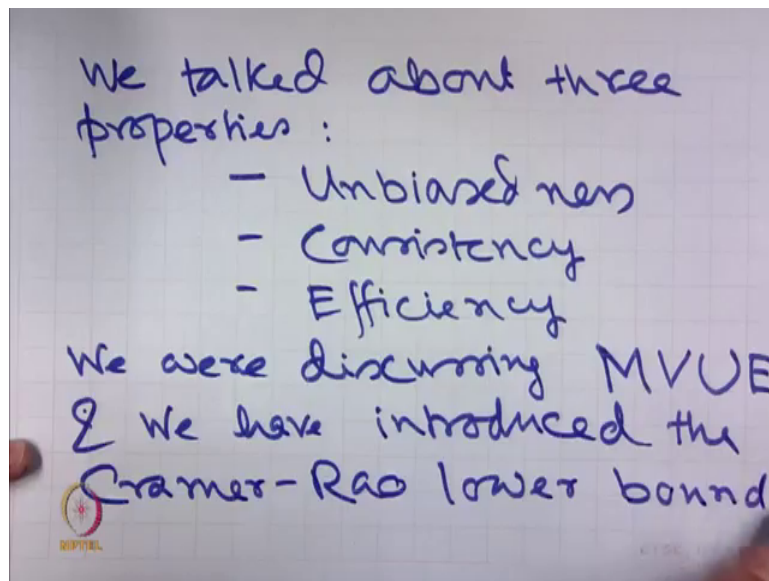 We talked about three
properties :
- Unbiasedness
- Consistency
- Efficiency
We were discussing MVUE
& We have introduced the
Cramer-Rao lower bound
NPTEL